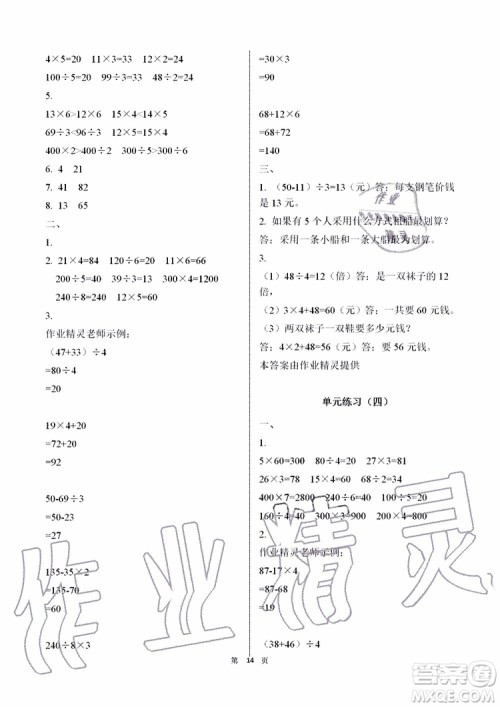 4×5=20 11×3=33 21×4=84
100÷5=20 11×5=55
5.
13×6>12×6 15×4<4×16
69÷3<96÷3 13×4=4×13
400×2>400÷2 200÷2=300÷3
6. 4 21
7. 41 82
8. 13 65
二、
1.
2. 21×4=84 120÷6=20 11×6=66
200÷5=40 180÷3=60
240÷8=30 60÷5=12
3.
作业精灵老师示例:
(47+33)÷4
=80÷4
=20
19×4+20
=72+20
=92
50-69÷3
=50-23
=27
135-35×2
=135-70
=60
240÷8×3
=30×3
=90
68+12×6
=68+72
=140
三、
1. (50-11)÷3=13(元)答:每支钢笔价钱
是 13 元。
2. 如果有 5 个人采用什么方式租船最划算?
答:采用一条小船和一条大船最为划算。
3.
(1)48÷4=12(倍)答:是一双袜子的 12
倍,
(2)4×3+48=60(元)答:一共要 60 元钱。
(3)两双袜子一双鞋要多少元钱?
答:4×2+48=56(元)答:要 56 元钱。
本答案由作业精灵提供
单元练习(四)
一、
1.
5×60=300 80÷4=20 27×3=81
26×3=78 0×7=0 69÷3=23
400×7=2800 300÷5=60 90÷9=10
160÷4=40 900-100=800 200×4=800
2.
作业精灵老师示例:
87-17×4
=87-68
=19
(38+46)÷4
第 14 页
作业精灵
作业
精灵
答案圈
MXQE.COM